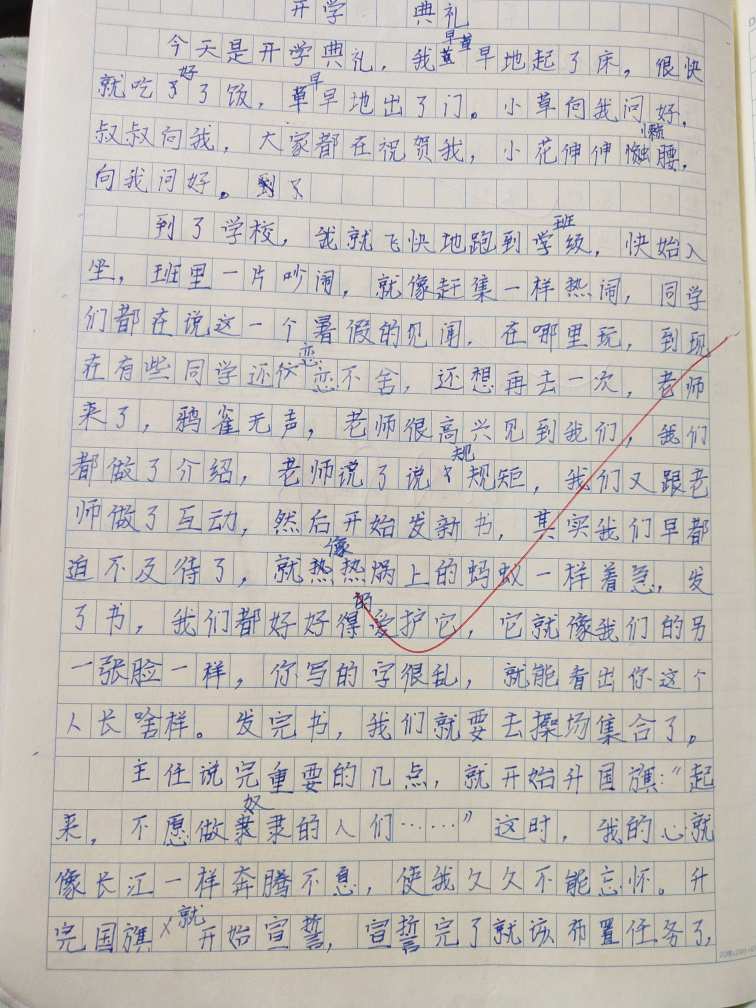 开学 典礼
今天是开学典礼，我早早地起了床，很快
就吃好了饭，早早地出了门。小草向我问好，
叔叔向我，大家都在祝贺我，小花伸伸懒腰，
向我问好。到了
到了学校，我就飞快地跑到班级，快始入
坐，班里一片吵闹，就像赶集一样热闹，同学
们都在说这一个暑假的见闻，在哪里玩，到现
在有些同学还恋恋不舍，还想再去一次，老师
来了，鸦雀无声，老师很高兴见到我们，我们
都做了介绍，老师说了说规矩，我们又跟老
师做了互动，然后开始发新书，其实我们早都
迫不及待了，就像热热焗上的蚂蚁一样着急，发
了书，我们都好好得爱护它，它就像我们的另
一张脸一样，你写的字很乱，就能看出你这个
人长啥样。发完书，我们就要去操场集合了。
主任说完重要的几点，就开始升国旗：“起
来，不愿做奴隶的人们……”这时，我的心就
像长江一样奔腾不息，使我久久不能忘怀。升
完国旗就开始宣誓，宣誓完了就该布置任务了，